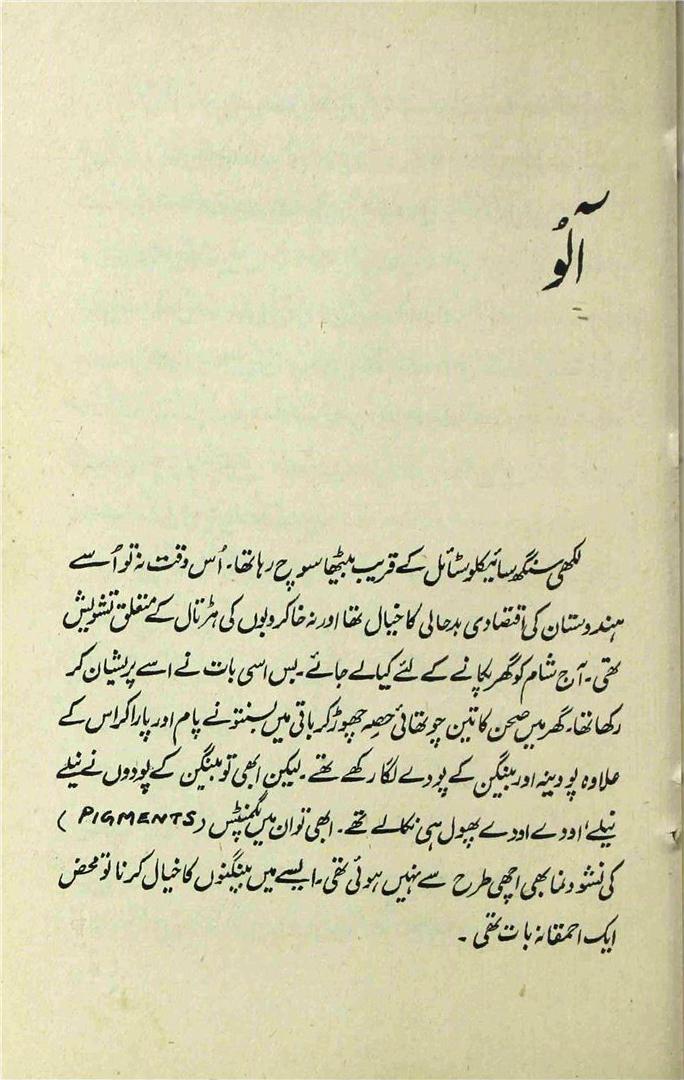 آلُو
لکھی سنگھ سائیکلوسٹائل کے قریب بیٹھا سوچ رہا تھا۔ اُس وقت نہ تو اُسے
ہندوستان کی اقتصادی بدحالی کا خیال تھا اور نہ خاکروبوں کی ہڑتال کے متعلق تشویش
تھی۔ آج شام کو گھر پکانے کے لئے کیا لے جائے۔ بس اسی بات نے اسے پریشان کر
رکھا تھا۔ گھر میں صحن کا تین چوتھائی حصہ چھوڑ کر باقی میں بسنتو نے پام اور پارا کراس کے
علاوہ پودینہ اور بینگن کے پودے لگا رکھے تھے۔ لیکن ابھی تو بینگن کے پودوں نے نیلے
نیلے، اودے اودے پھول ہی نکالے تھے۔ ابھی تو ان میں پگمنٹس (PIGMENTS)
کی نشوونما بھی اچھی طرح سے نہیں ہوئی تھی۔ ایسے میں بینگنوں کا خیال کرنا تو محض
ایک احمقانہ بات تھی۔